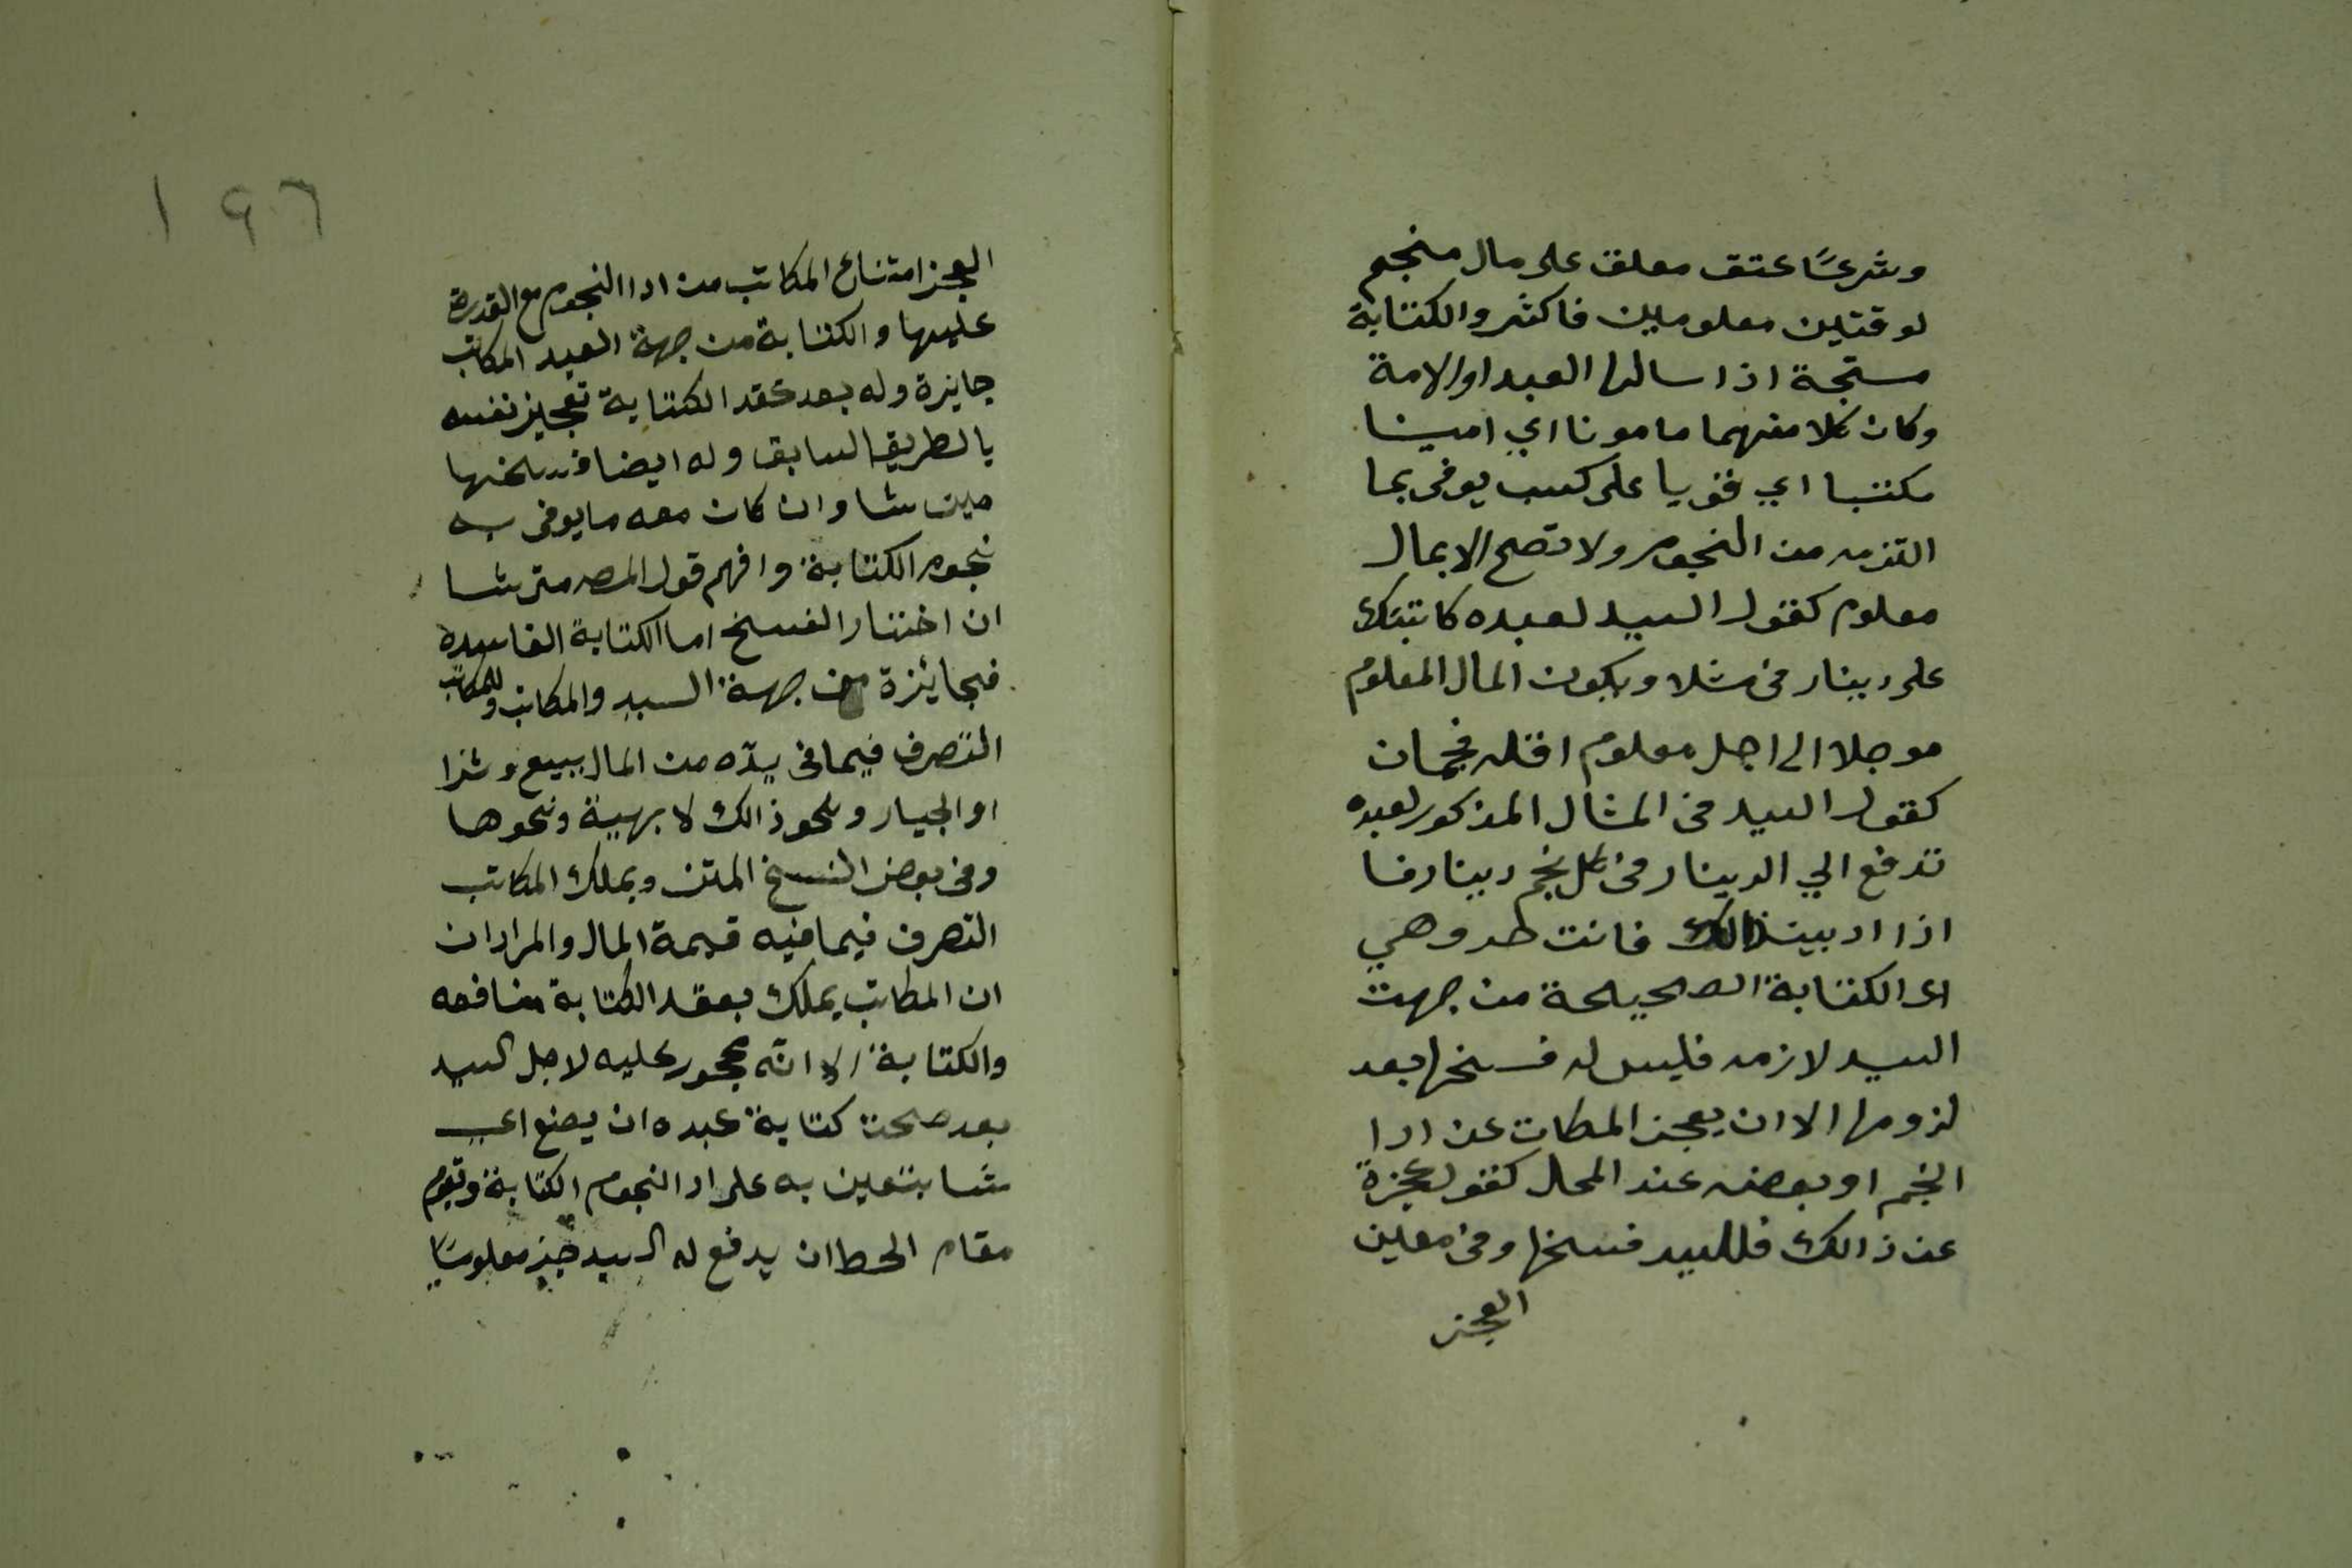 وشرعًا عتق معلق على مال منجم
لوقتين معلومين فاكثر والكتابة
مستحبة اذا سالها العبد او الامة
وكان كلا منهما مامونا اي امينا
مكتسبا اي قويا على كسب يوفى بما
التزمه من النجوم ولا تصح الا بمال
معلوم كقول السيد لعبده كاتبتك
على دينارين مثلا ويكون المال المعلوم
موجلا الى اجل معلوم اقله نجمان
كقول السيد فى المثال المذكور لعبده
تدفع الي الدينار فى كل نجم دينار فا
اذا اديت ذالك فانت حر وهي
اى الكتابة الصحيحة من جهت
السيد لازمه فليس له فسخها بعد
لزومها الا ان يعجز المكاتب عن ادا
النجم او بعضه عند المحل كقوله عجزة
عن ذالك فللسيد فسخها وفى معين
العجز
١٩٦
العجز امتناع المكاتب من ادا النجوم مع القدرة
عليها والكتابة من جهة العبد المكاتب
جايزة وله بعد عقد الكتابة تعجيز نفسه
بالطريق السابق وله ايضا فسخها
متى شا وان كان معه ما يوفى به
نجوم الكتابة وافهم قول المصـ متى شا
ان اختار الفسخ اما الكتابة الفاسدة
فجائزة من جهة السيد والمكاتب وللمكاتب
التصرف فيما فى يده من المال ببيع وشرا
او الجيار ونحو ذالك لا بهبة ونحوها
وفى بعض النسخ المتن ويملك المكاتب
التصرف فيما فيه قيمة المال والمراد ان
ان المكاتب يملك بعقد الكتابة منافعه
والكتابة الا انه محجور عليه لاجل السيد
بعد صحت كتابة عبده ان يضع اى
شا يتعين به على ادا النجوم الكتابة وتقوم
مقام الحط ان يدفع له السيد جز معلوما